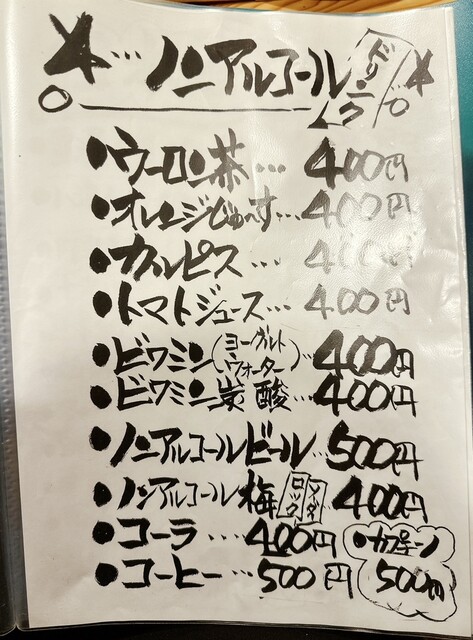 …ノンアルコール ドリンク
●ウーロン茶…400円
●オレンジじゅーす…400円
●カルピス…400円
●トマトジュース…400円
●ビワミン(ヨーグルトウォーター)…400円
●ビワミン炭酸…400円
●ノンアルコールビール…500円
●ノンアルコール梅 ロック ソーダ 400円
●コーラ…400円
●コーヒー…500円
500円